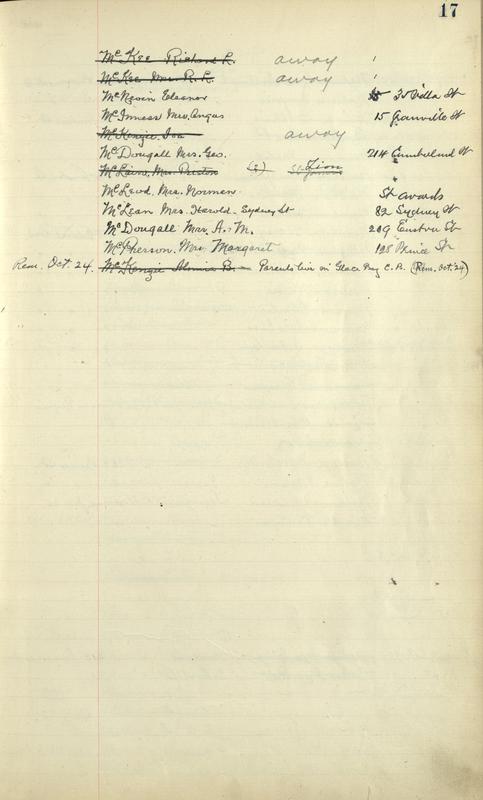 17
McKee Richard L. away
McKee Mrs. R. L. away
McNevin Eleanor 35 Villa St
McInness Mrs. Angus 15 Granville St
McKenzie Ina away
McDougall Mrs. Geo. 214 Cumberland St
McLaine, Mrs. Preston Zion
McLeod, Mrs. Normen. St Avards
McLean Mrs. Harold - Sydney St 82 Sydney St
McDougall Mrs. A. M. 209 Euston St
McPherson, Mrs. Margaret 128 Prince St
Rem. Oct. 24. McKenzie Almira B. - Parents live in Glace Bay C.B. (Rem. Oct. 24)